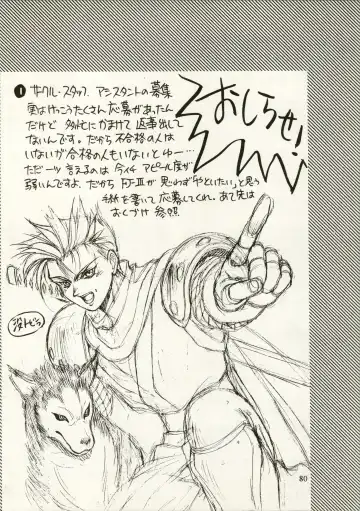 おしらせ！
❶ サークル・スタッフ アシスタントの募集
実はけっこうたくさん応募があったん
だけど 多忙にかまけて 返事出して
ないんです。だから 不合格の人は
いないが 合格の人もいないとゆー…
ただ一ツ 言えるのは 今イチ アピール度が
弱いんですよ。だから FJ-Ⅲが 思わず「やといたい」と思う
手紙を書いて 応募してくれ。あて先は
おくづけ 参照
没トビラ
80